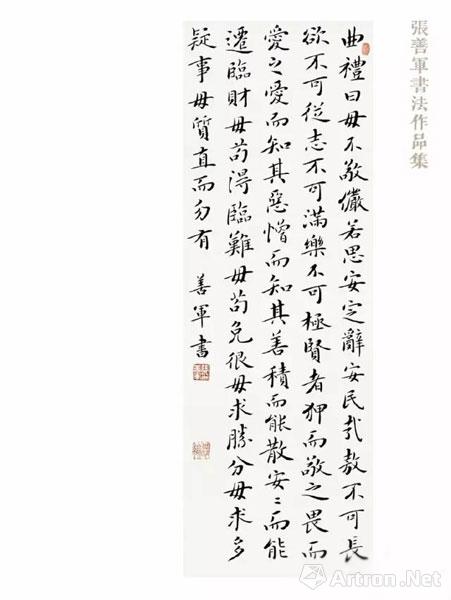 張善軍書法作品集
曲禮曰毋不敬儼若思安定辭安民哉敖不可長
欲不可從志不可滿樂不可極賢者狎而敬之畏而
愛之愛而知其惡憎而知其善積而能散安〻而能
遷臨財毋苟得臨難毋苟免很毋求勝分毋求多
疑事毋質直而勿有 善軍書
Artron.Net